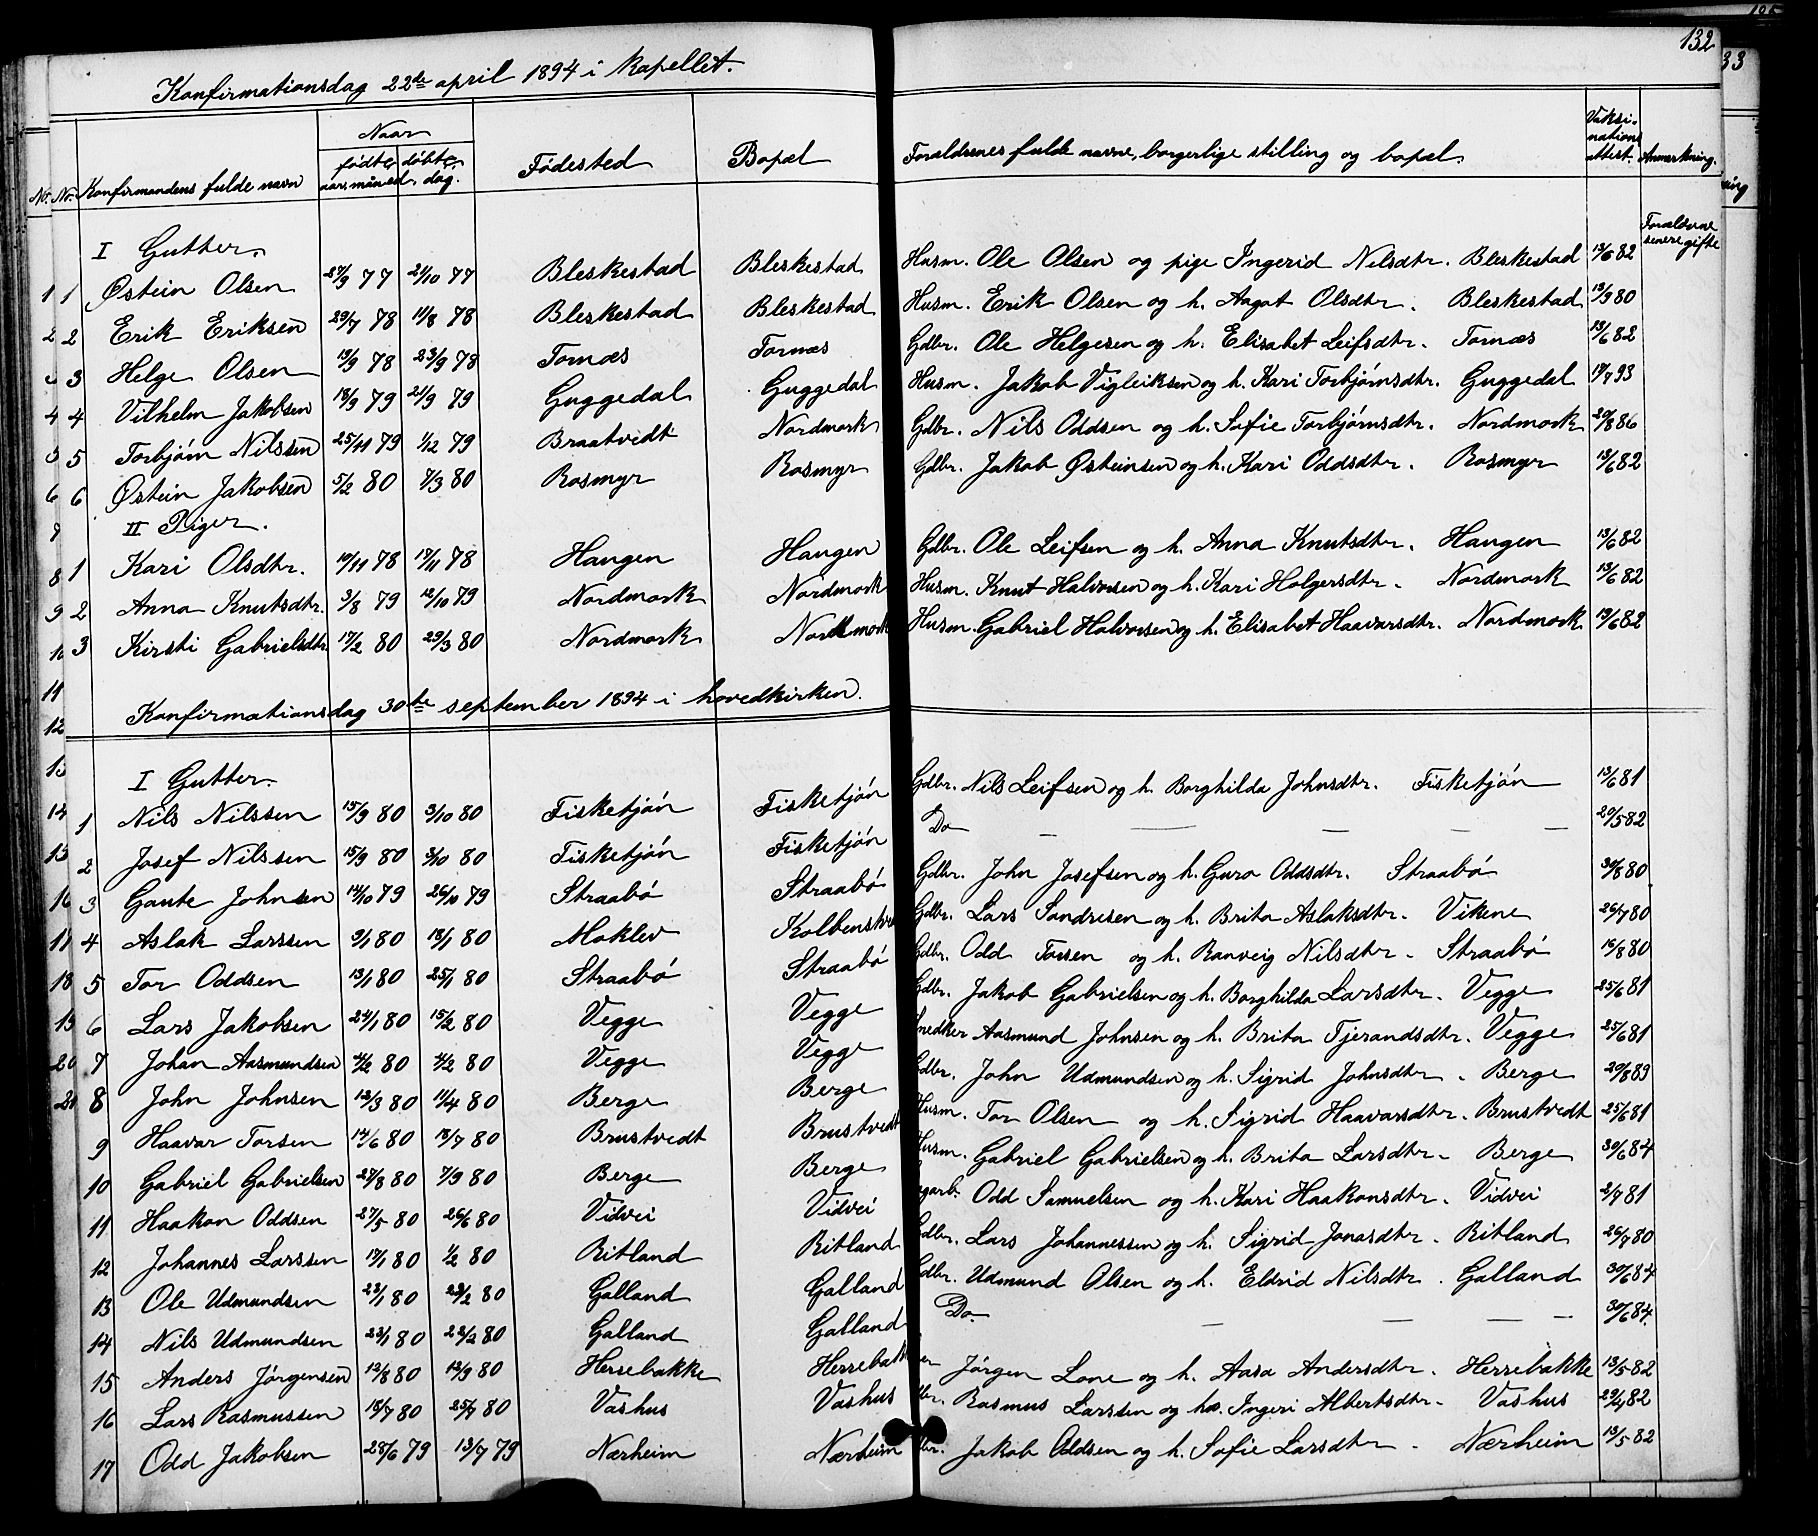 132
Konfirmationsdag 22de april 1894 i kapellet.
No. No. Konfirmandens fulde navn Naar fødte aar, maaned, døbte dag. Fødested Bopæl Forældrenes fulde navne, borgerlige stilling og bopæl. Vaksinationsattest. Anmerkning.
I Gutter.
1 1 Østein Olsen 27/9 77 21/10 77 Bleskestad Bleskestad Husm. Ole Olsen og pige Ingerid Nilsdtr. Bleskestad 13/6 82 Forældrene senere gifte
2 2 Erik Eriksen 29/7 78 11/8 78 Bleskestad Bleskestad Husm. Erik Olsen og h. Aagot Olsdtr. Bleskestad 13/9 80
3 Helge Olsen 13/9 78 23/9 78 Tornæs Tornæs Gdbr. Ole Helgesen og h. Elisabet Leifsdtr. Tornæs 13/6 82
4 4 Vilhelm Jakobsen 13/9 79 21/9 79 Guggedal Guggedal Husm. Jakob Vigleiksen og h. Kari Torbjørnsdtr. Guggedal 17/7 93
5 5 Torbjørn Nilssen 25/11 79 1/12 79 Braatvedt Nordmork Gdbr. Nils Oddsen og h. Sofie Torbjørnsdtr. Nordmork 20/8 86
6 6 Østein Jakobsen 5/2 80 7/3 80 Rosmyr Rosmyr Gdbr. Jakob Østeinsen og h. Kari Oddsdtr. Rosmyr 13/6 82
7 II Piger.
8 1 Kari Olsdtr. 10/11 78 17/11 78 Haugen Haugen Gdbr. Ole Leifsen og h. Anna Knutsdtr. Haugen 13/6 82
9 2 Anna Knutsdtr. 3/8 79 12/10 79 Nordmork Nordmork Husm. Knut Halvorsen og h. Kari Holgersdtr. Nordmork 13/6 82
10 3 Kirsti Gabrielsdtr. 17/2 80 29/3 80 Nordmork Nordmork Husm. Gabriel Halvorsen og h. Elisabet Haavarsdtr. Nordmork 13/6 82
11
12 Konfirmationsdag 30te september 1894 i hovedkirken.
13 I Gutter.
14 1 Nils Nilssen 15/9 80 3/10 80 Fisketjøn Fisketjøn Gdbr. Nils Leifsen og h. Borghilda Johnsdtr. Fisketjøn 13/6 81
15 2 Josef Nilssen 15/9 80 3/10 80 Fisketjøn Fisketjøn Do — — — — — 20/5 82
16 3 Gaute Johnsen 14/10 79 26/10 79 Straabø Straabø Gdbr. John Josefsen og h. Guro Oddsdtr. Straabø 30/8 80
17 4 Aslak Larssen 9/1 80 18/1 80 Moklev Gdbr. Lars Sondresen og h. Brita Aslaksdtr. Vikene 26/7 80
18 5 Tor Oddsen 13/1 80 25/1 80 Straabø Straabø Gdbr. Odd Torsen og h. Ranveig Nilsdtr. Straabø 16/8 80
19 6 Lars Jakobsen 24/1 80 15/2 80 Vegge Vegge Gdbr. Jakob Gabrielsen og h. Borghilda Larsdtr. Vegge 25/6 81
20 7 Johan Aasmundsen 4/2 80 4/2 80 Vegge Vegge Snedker Aasmund Johnsen og h. Brita Tjerandsdtr. Vegge 25/6 81
21 8 John Johnsen 12/3 80 11/4 80 Berge Berge Gdbr. John Udmundsen og h. Sigrid Johnsdtr. Berge 20/8 89
9 Haavar Torsen 14/6 80 18/7 80 Brustvedt Brustvedt Husm. Tor Olsen og h. Sigrid Haavarsdtr. Brustvedt 25/6 81
10 Gabriel Gabrielsen 27/8 80 7/9 80 Berge Berge Husm. Gabriel Gabrielsen og h. Brita Larsdtr. Berge 30/6 84
11 Haakon Oddsen 27/5 80 26/6 80 Vidvei Vidvei Odd Samuelsen og h. Kari Haakonsdtr. Vidvei 2/7 81
12 Johannes Larssen 17/1 80 1/2 80 Ritland Ritland Gdbr. Lars Johannessen og h. Sigrid Jonasdtr. Ritland 26/7 80
13 Ole Udmundsen 23/1 80 23/2 80 Galland Galland Gdbr. Udmund Olsen og h. Eldrid Nilsdtr. Galland 30/6 84
14 Nils Udmundsen 23/1 80 23/2 80 Galland Galland Do. — — — — 30/6 84.
15 Anders Jørgensen 12/8 80 12/9 80 Herrebakke Herrebakke Jørgen Lone og h. Aasa Andersdtr. Herrebakke 13/5 82
16 Lars Rasmussen 18/7 80 25/7 80 Vashus Vashus Rasmus Larssen og h. Ingeri Albertsdtr. Vashus 29/4 82
17 Odd Jakobsen 28/6 79 13/7 79 Nærheim Nærheim Jakob Oddsen og h. Sofie Larsdtr. Nærheim 13/5 82